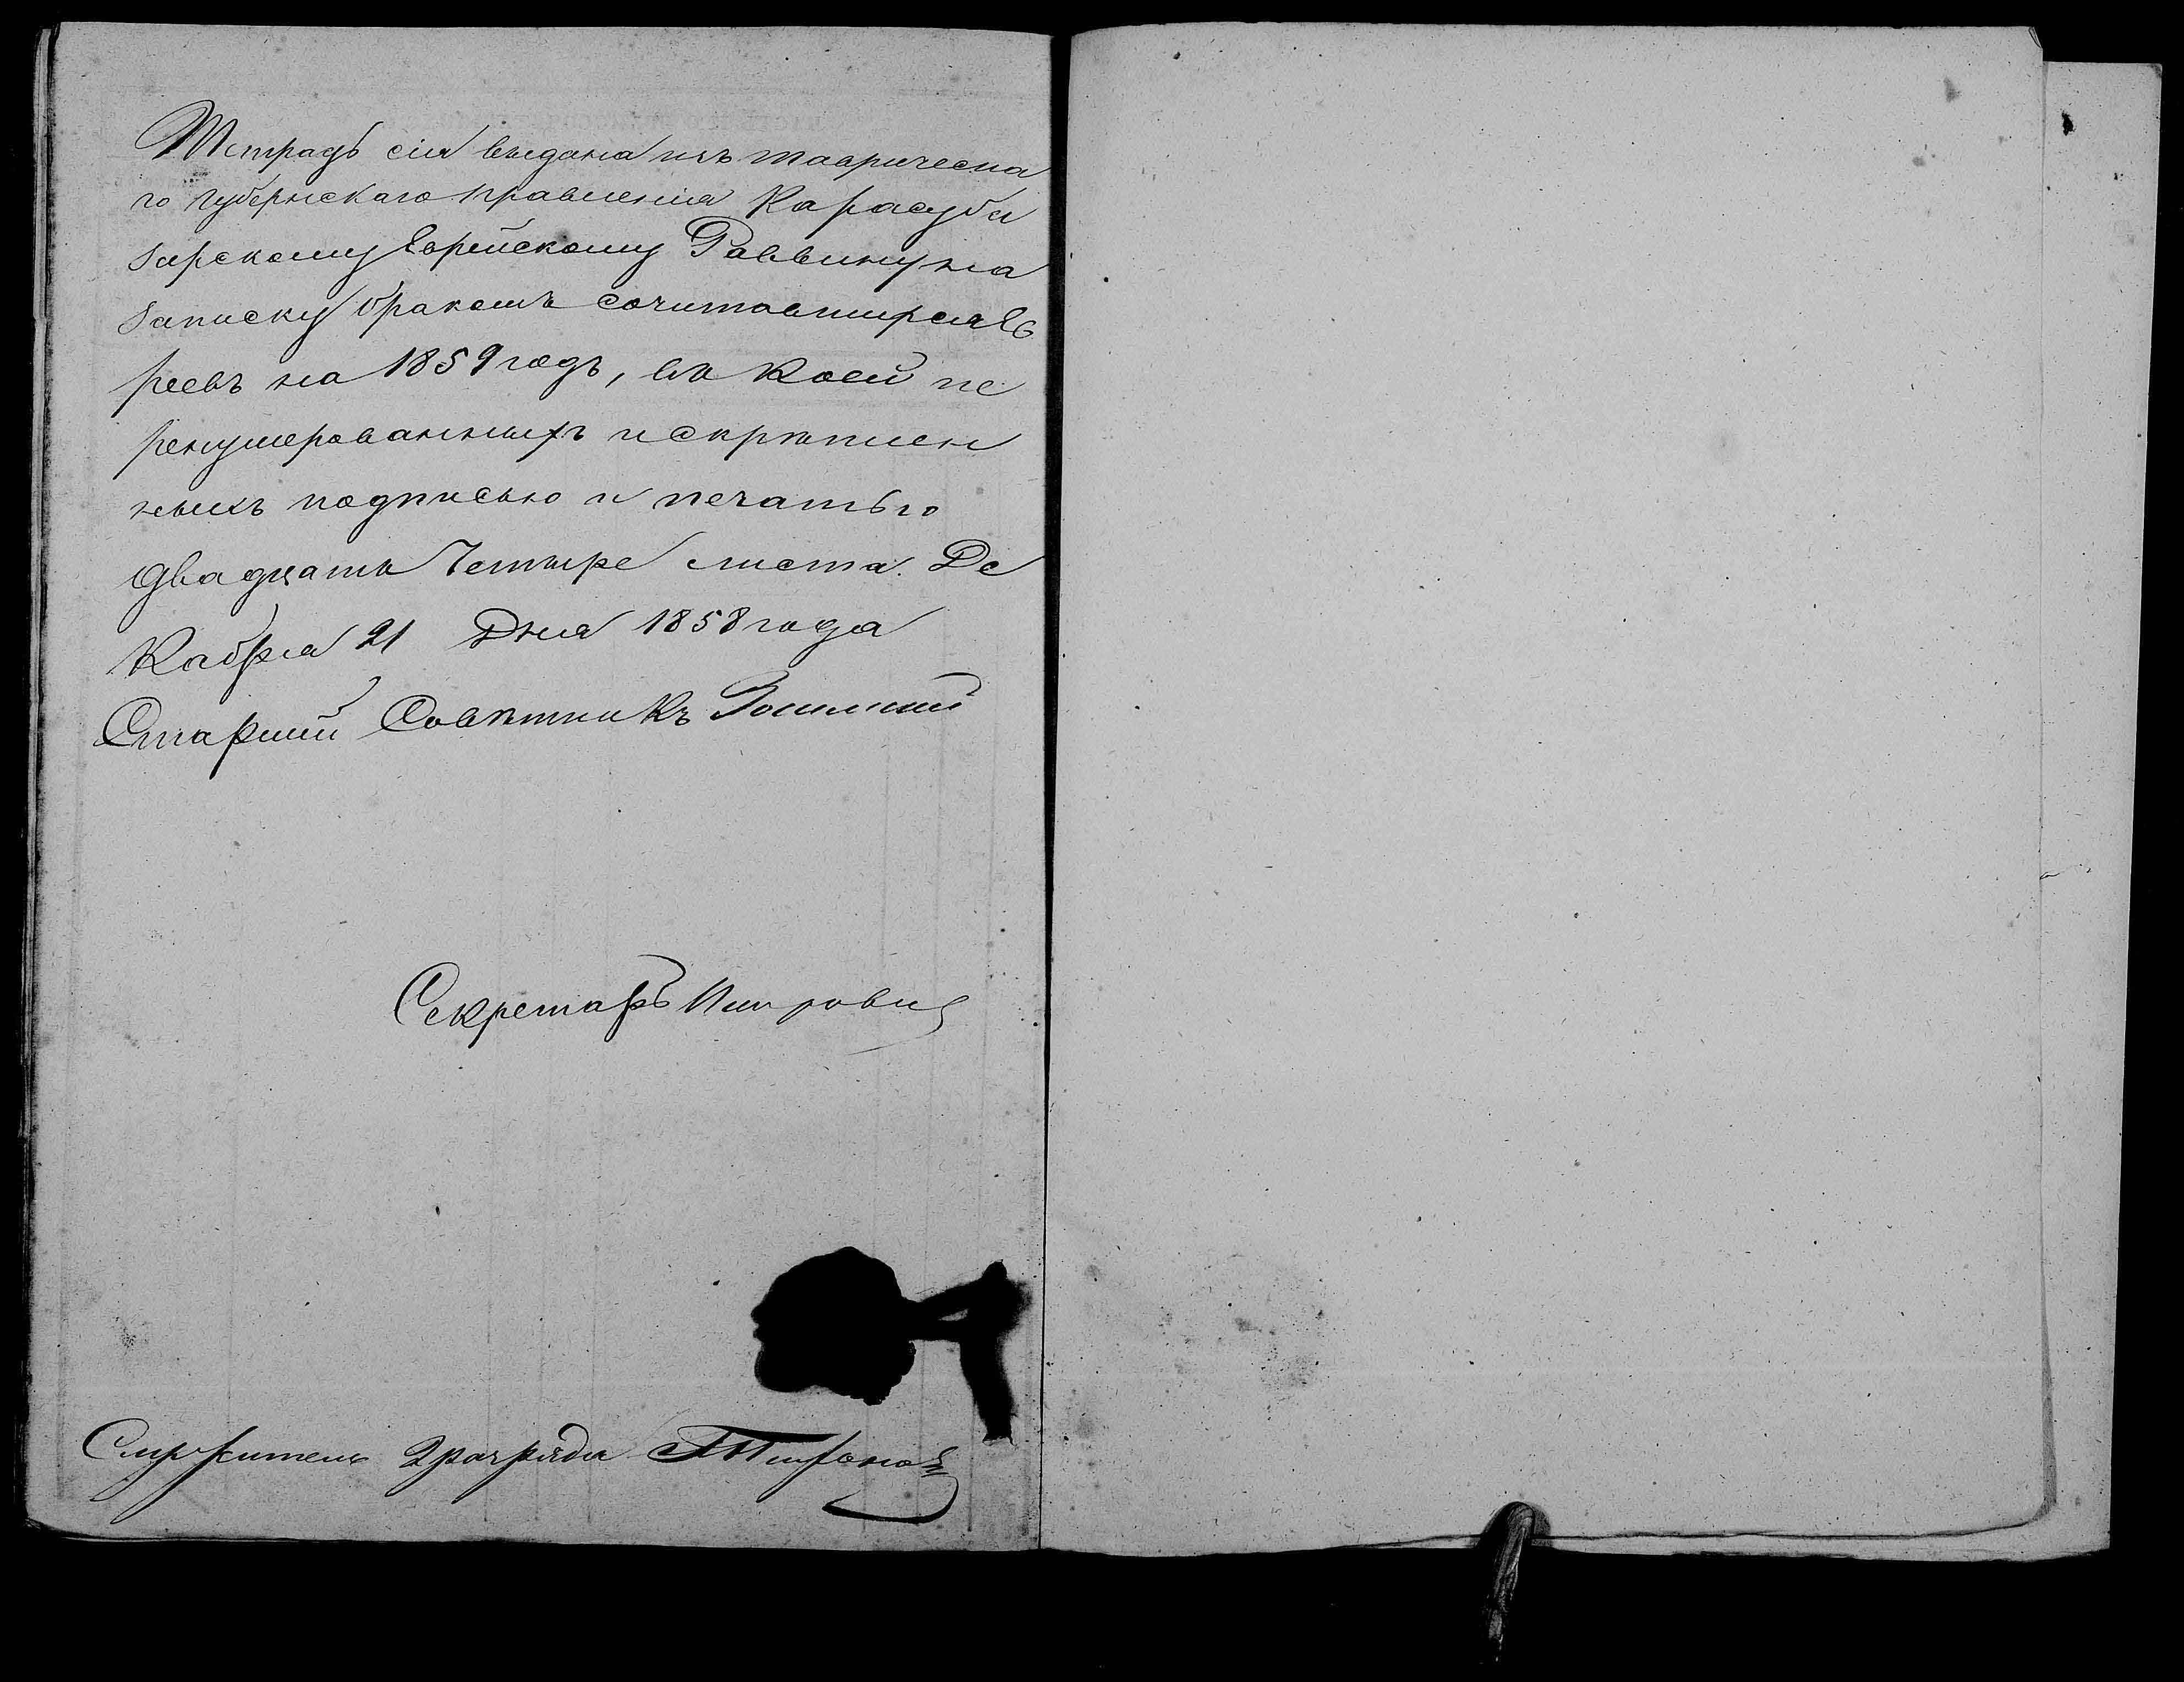 Тетрадь сія выдана изъ таврическа
го губернскаго правленія Карасуба
зарскому Еврейскому Раввину на
записку бракомъ сочитавшихся Ев
реевъ на 1859 годъ, въ коей пе
ренумерованныхъ и скрѣплен
ныхъ подписью и печатью
двадцать четыре листа. Де
кабря 21 дня 1858 года
Старшій Совѣтникъ
Секретарь
Служитель 2 разряда